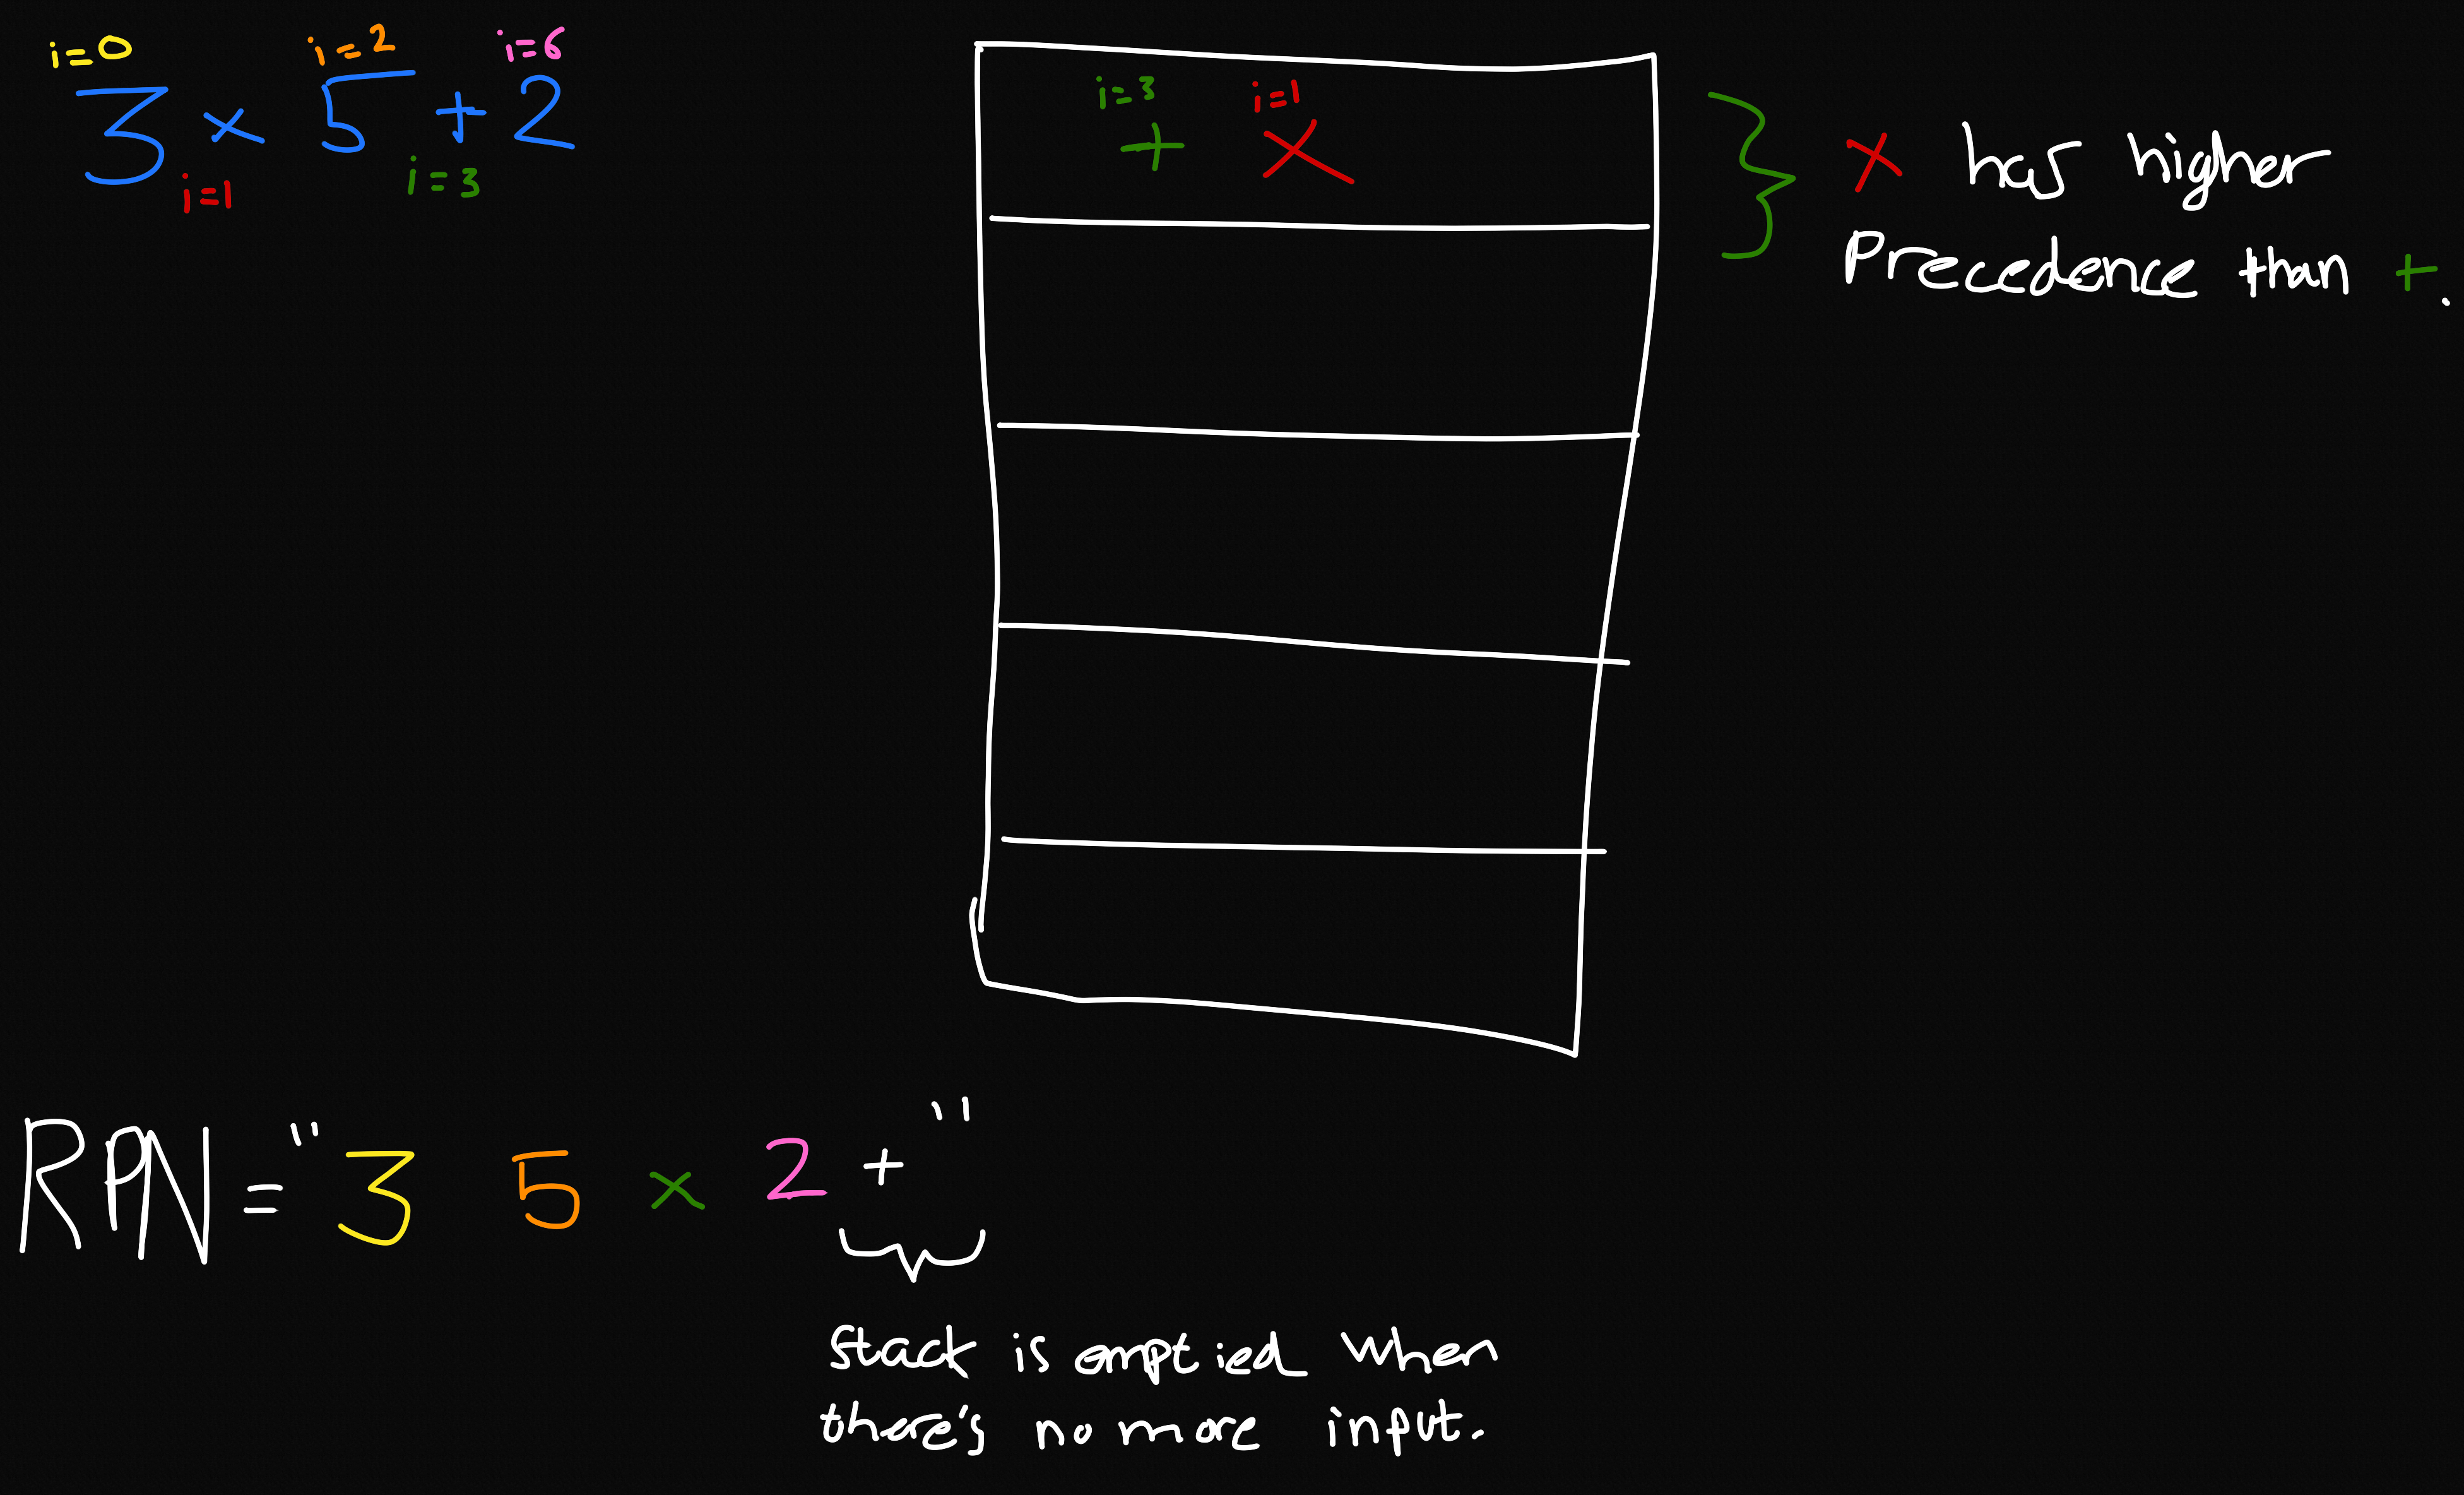 i=0 i=2 i=6
3 × 5 + 2
i=1 i=3
i=3 i=1
+ ×
× has higher
Precedence than +.
RPN = "3 5 × 2 +"
Stack is emptied when
there's no more input.